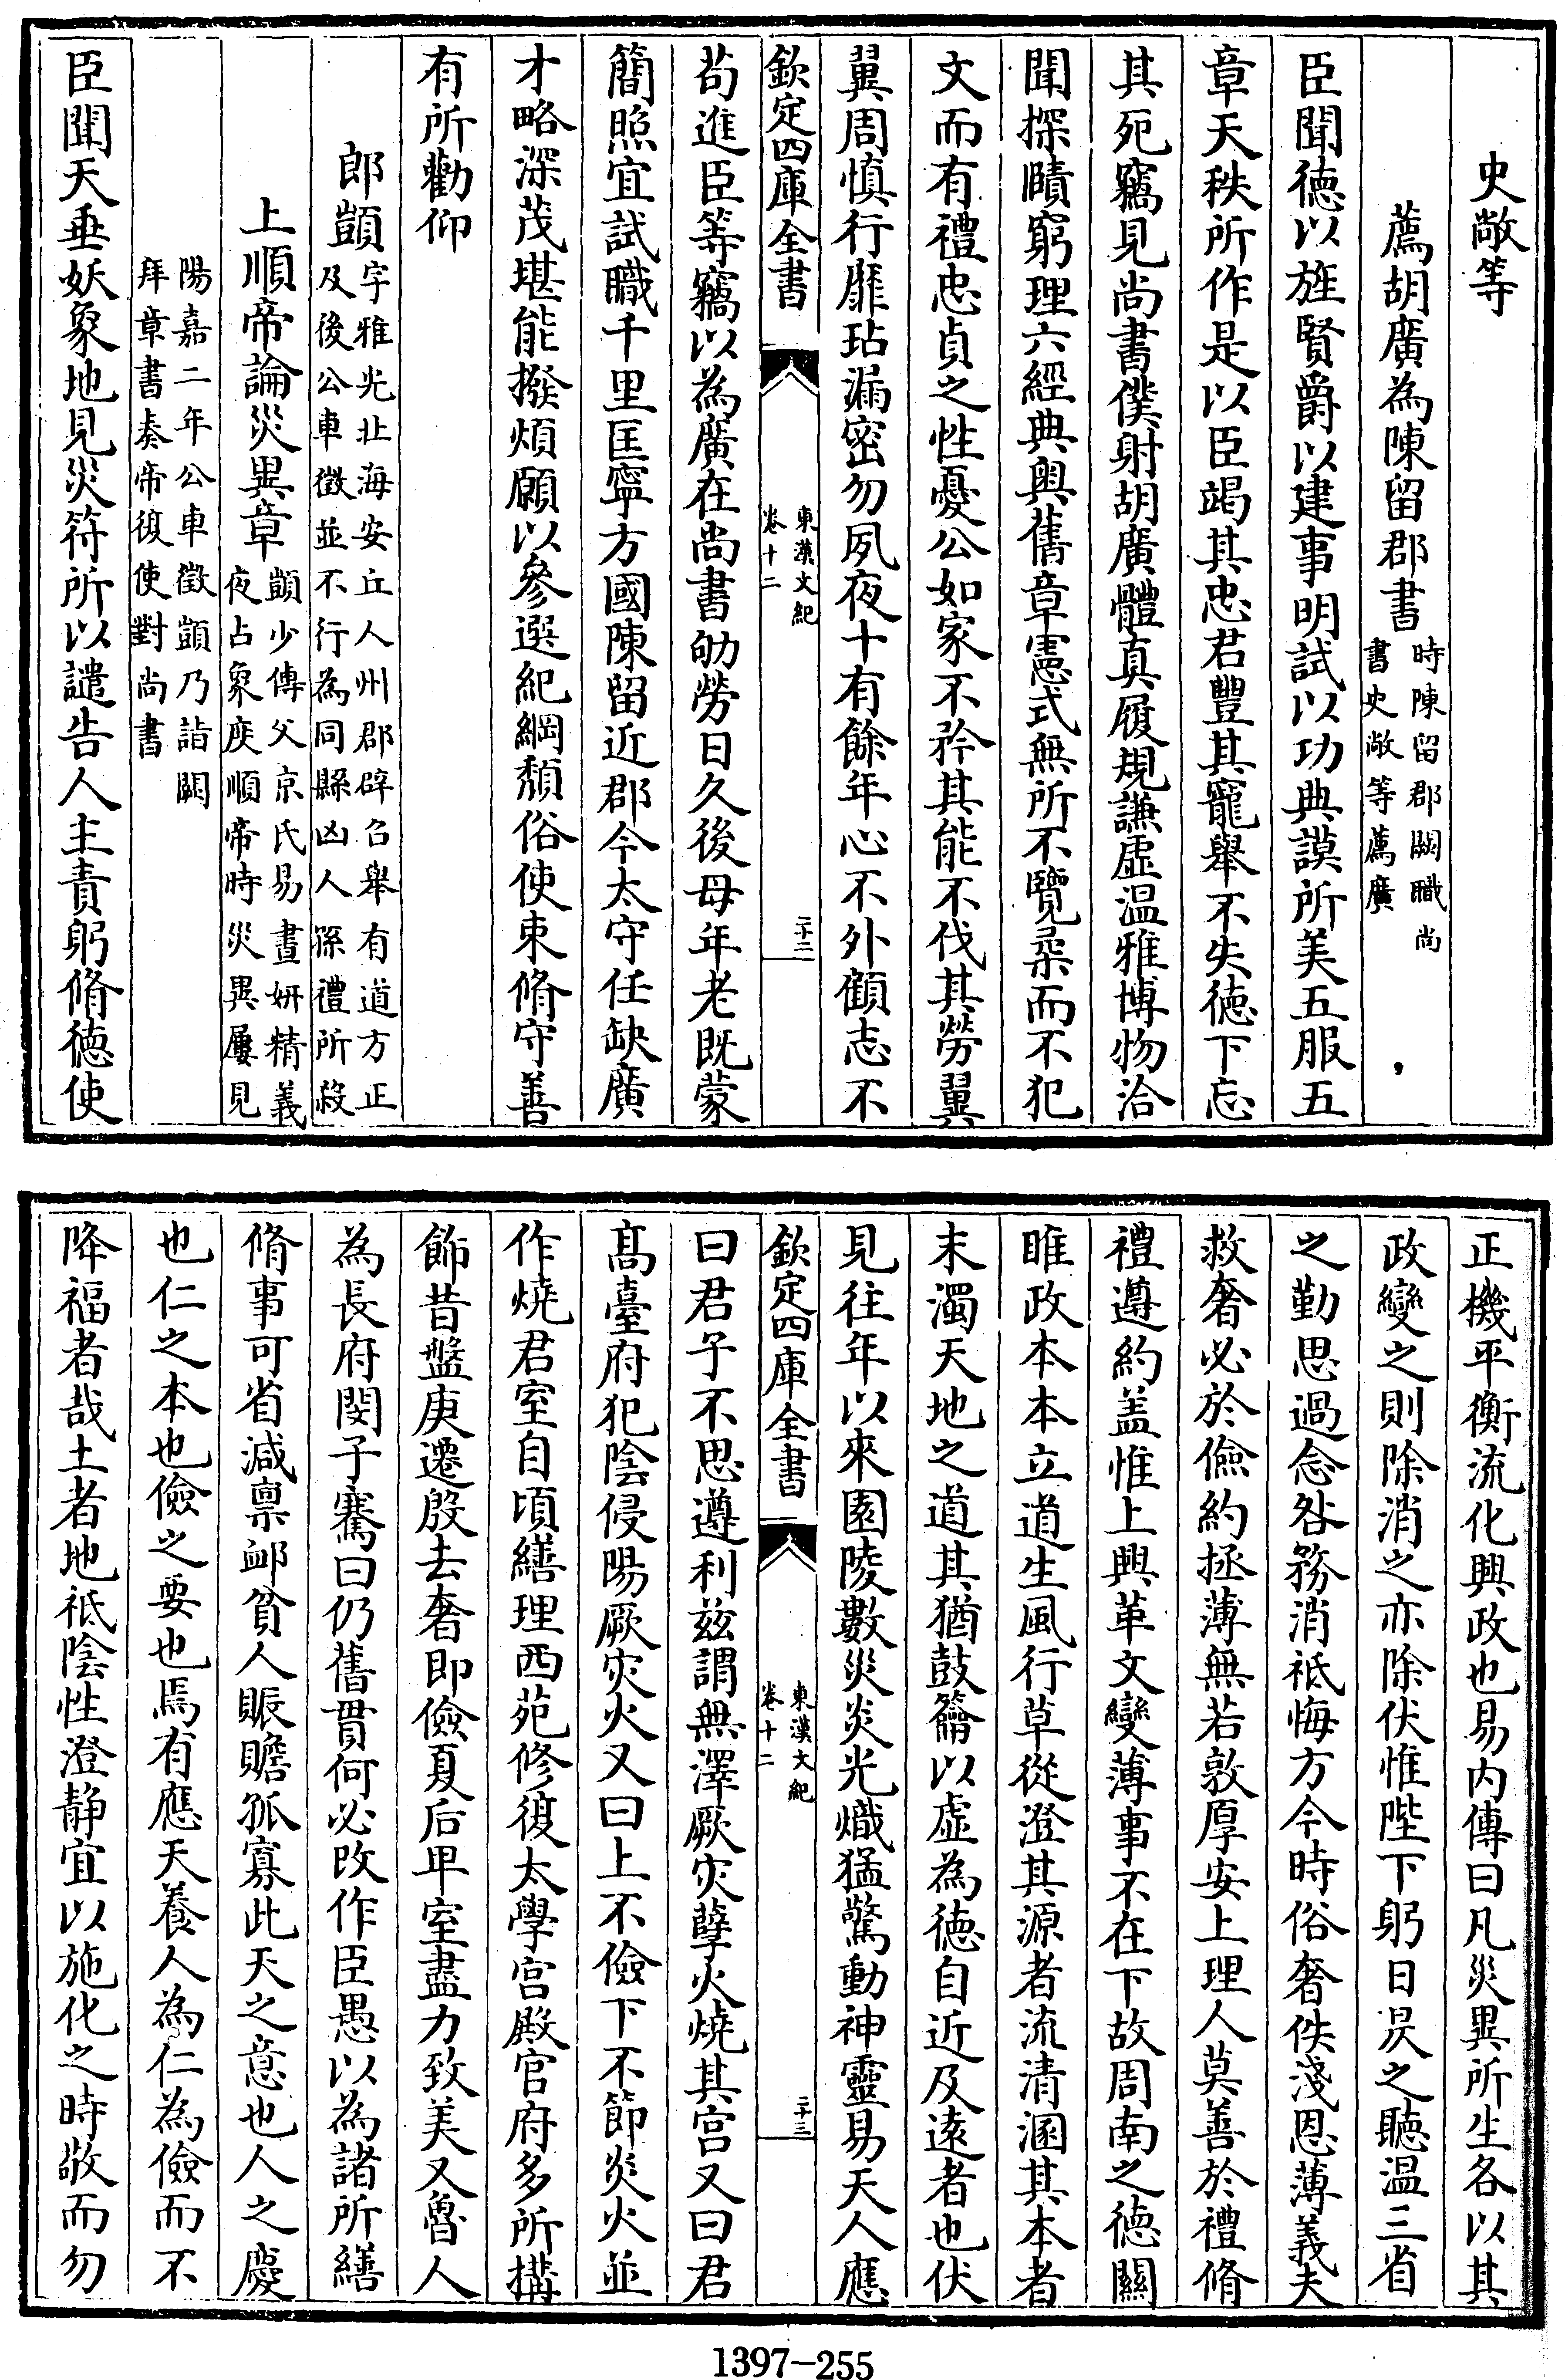 史敞等
薦胡廣為陳留郡書時陳留郡闕職尚
書史敞等薦廣
臣聞徳以旌賢爵以建事明試以功典謨所美五服五
章天秩所作是以臣竭其忠君豐其寵舉不失徳下忘
其死竊見尚書僕射胡廣體真履規謙虛温雅博物洽
聞探賾窮理六經典奥舊章憲式無所不覽柔而不犯
文而有禮忠貞之性憂公如家不矜其能不伐其勞翼
翼周慎行靡玷漏密勿夙夜十有餘年心不外顧志不
欽定四庫全書
東漢文紀
卷十二
二十二
茍進臣等竊以為廣在尚書劬勞日久後母年老既蒙
簡照宜試職千里匡寧方國陳留近郡今太守任缺廣
才略深茂堪能撥煩願以參選紀綱頽俗使束脩守善
有所勸仰
郎顗字雅光北海安丘人州郡辟召舉有道方正
及後公車徵並不行為同縣凶人孫禮所殺
上順帝論災異章顗少傳父京氏易晝妍精義
夜占象度順帝時災異屢見
陽嘉二年公車徵顗乃詣闕
拜章書奏帝復使對尚書
臣聞天垂妖象地見災符所以譴告人主責躬脩徳使
正機平衡流化興政也易内傳曰凡災異所生各以其
政變之則除消之亦除伏惟陛下躬日昃之聽温三省
之勤思過念咎務消祇悔方今時俗奢佚淺恩薄義夫
救奢必於儉約拯薄無若敦厚安上理人莫善於禮脩
禮遵約盖惟上興革文變薄事不在下故周南之徳關
雎政本本立道生風行草從澄其源者流清溷其本者
末濁天地之道其猶鼓籥以虛為徳自近及遠者也伏
見往年以來園陵數災炎光熾猛驚動神靈易天人應
欽定四庫全書
東漢文紀
卷十二
二十三
曰君子不思遵利兹謂無澤厥灾孽火燒其宫又曰君
髙臺府犯陰侵陽厥灾火又曰上不儉下不節炎火並
作燒君室自頃繕理西苑修復太學宫殿官府多所搆
飾昔盤庚遷殷去奢即儉夏后卑室盡力致美又魯人
為長府閔子騫曰仍舊貫何必改作臣愚以為諸所繕
脩事可省減禀䘏貧人賑贍孤寡此天之意也人之慶
也仁之本也儉之要也焉有應天養人為仁為儉而不
降福者哉土者地祇陰性澄静宜以施化之時敬而勿
1397-255